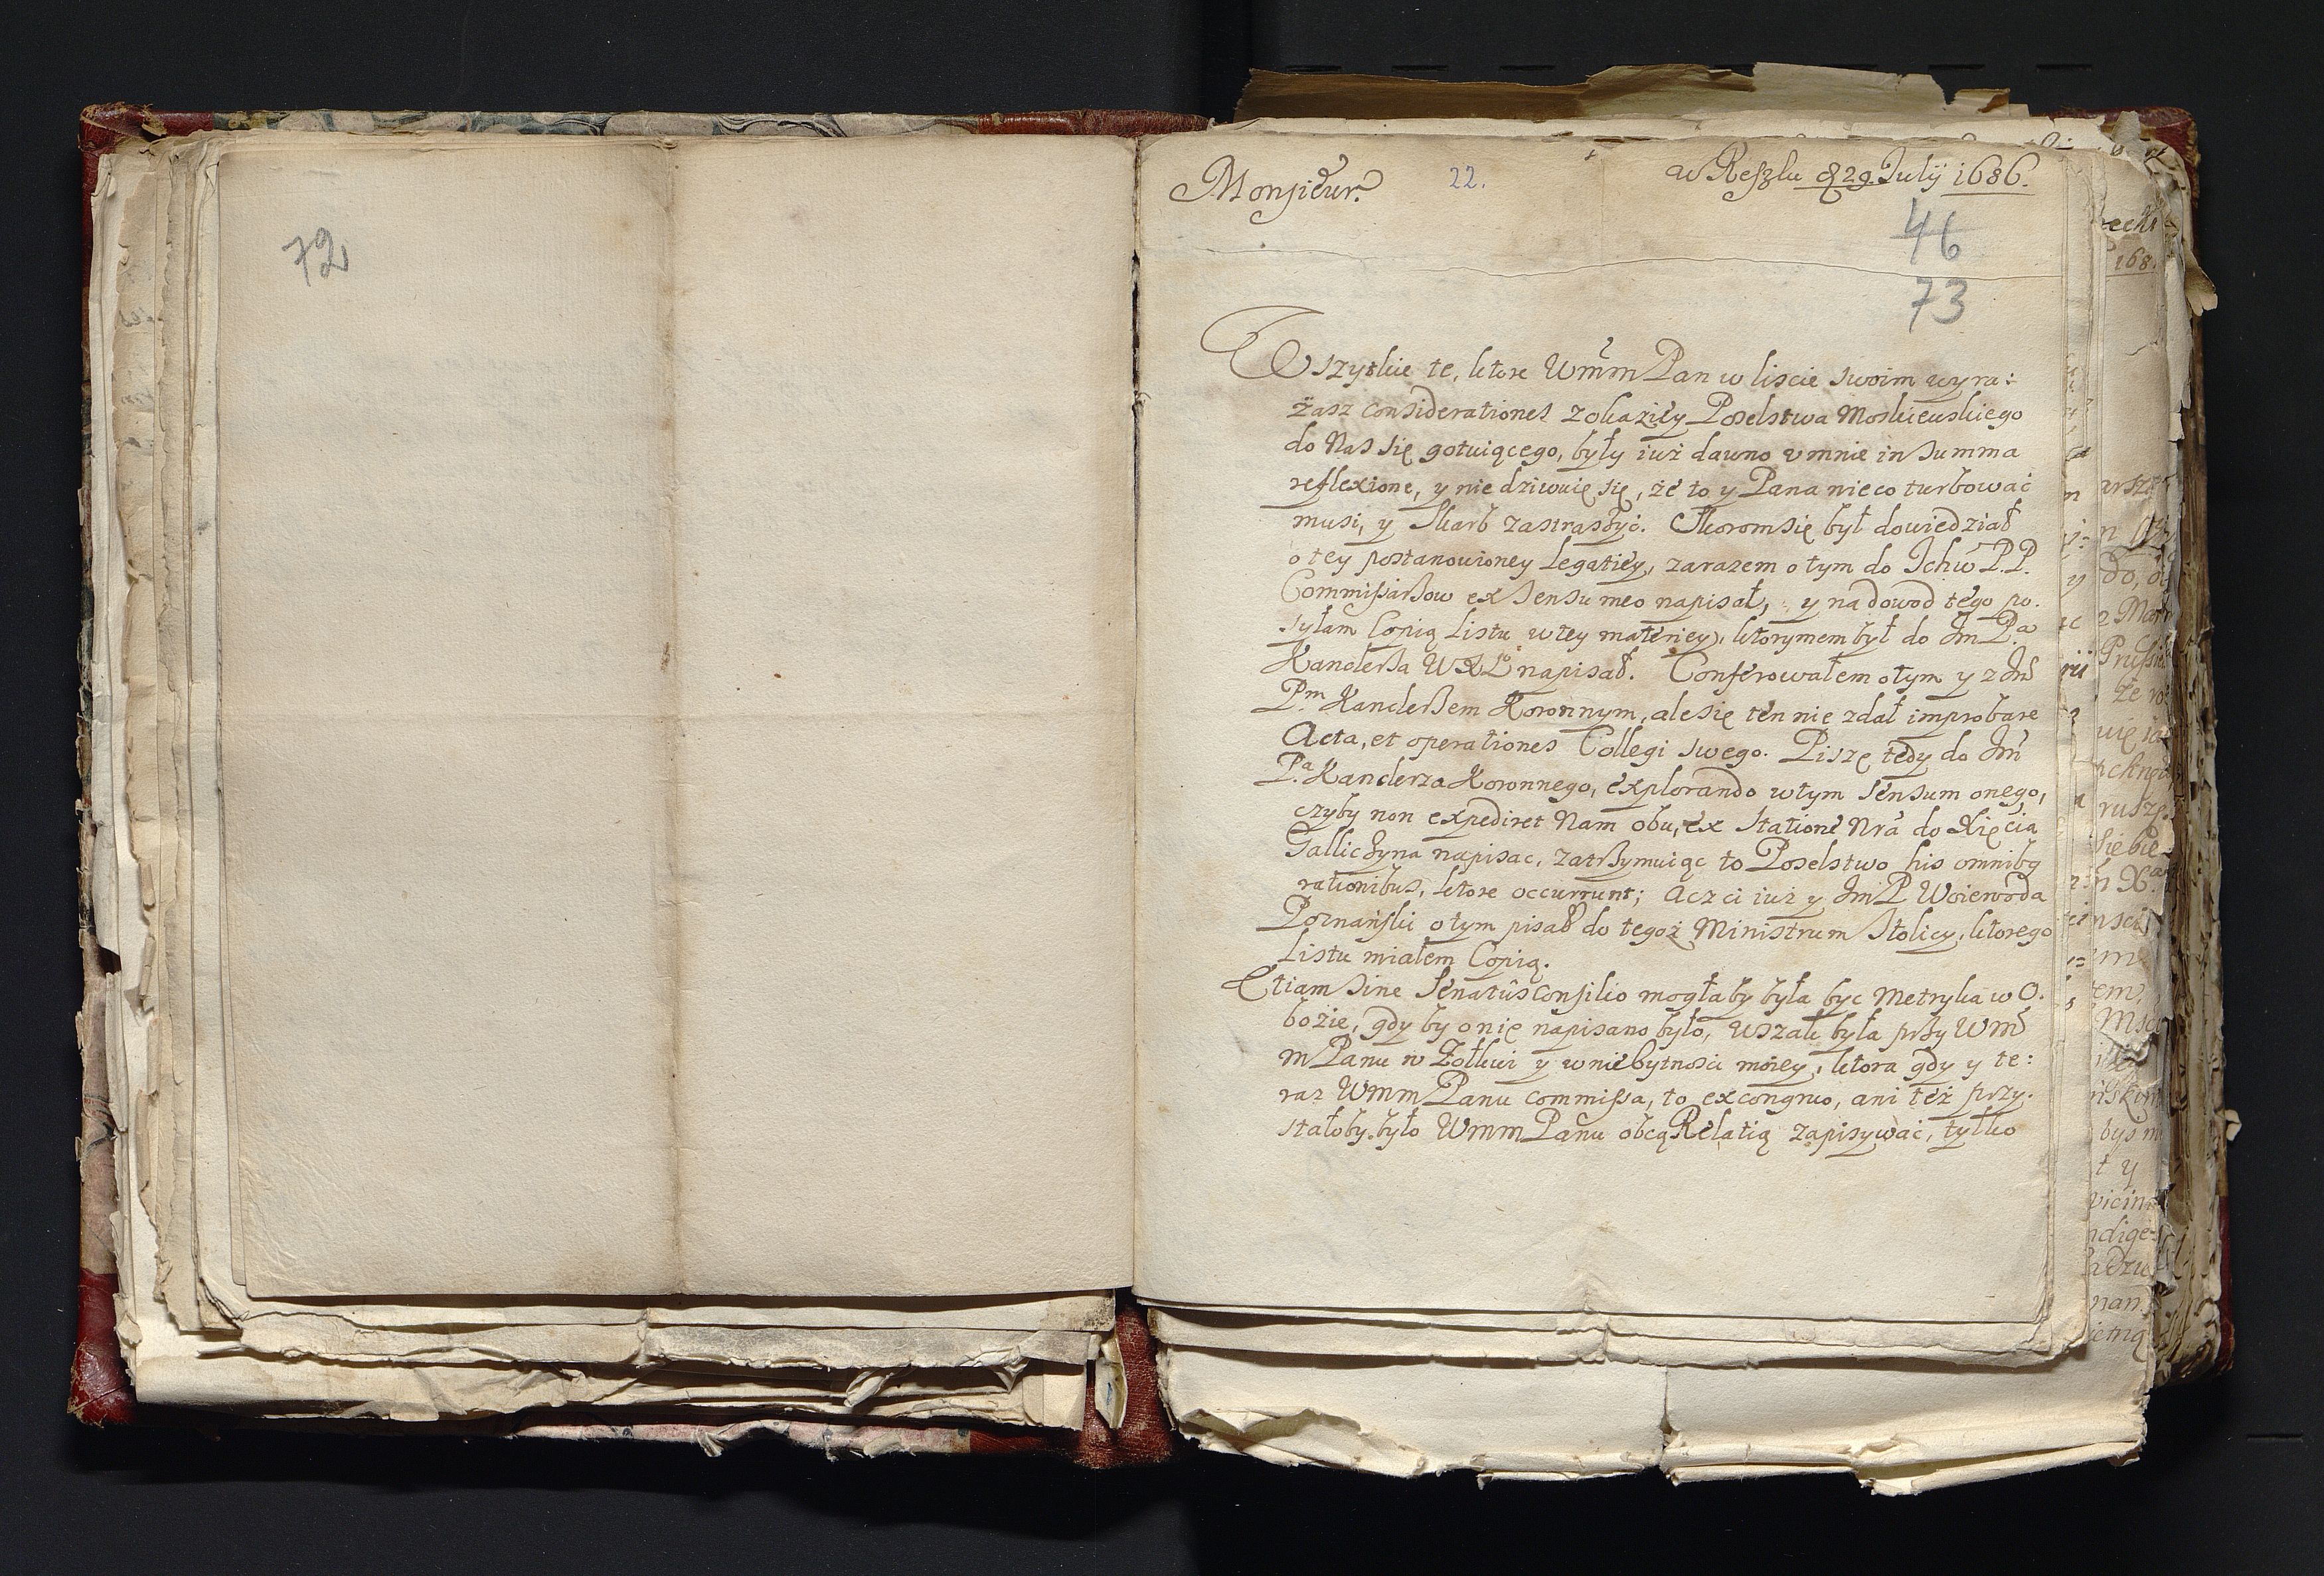 72
Monsieur.
22.
w Reszlu d 29. Julij 1686.
46
73
Wszytkie te, ktore WmmPan w liscie swoim wyra:
żasz considerationes z okaziey Poselstwa Moskiewskiego
do Nas się gotuiącego, były iuż dawno v mnie in summa
reflexione, y nie dziwuię się, że to y Pana nieco turbować
musi, y Skarb zastraszyć. Skorom się był dowiedział
o tey postanowioney Legatiey, zarazem o tym do Ichm P.P.
Commissarzow ex sensu meo napisał, y na dowod tego po.
syłam Copią Listu w tey materiey, ktorymem był do Jm P.a
Kanclerza WXL napisał. Conferowałem o tym y z Jm
P.m Kanclerzem Koronnym, ale się ten nie zdał improbare
Acta, et operationes Collegi swego. Piszę tedy do Jm
P.a Kanclerza Koronnego, explorando w tym sensum onego,
czyby non expediret Nam obu, ex statione Nra do Xięcia
Galliczyna napisac, zatrzymuiąc to Poselstwo his omnibq
rationibus, ktore occurrunt; Acz ci iuż y JmP Woiewoda
Poznański o tym pisał do tegoż Ministrum Stolicy, ktorego
Listu miałem Copią.
Etiam sine Senatûs consilio mogłaby była byc Metryka w O.
bozie, gdy by o nię napisano było, wszak była przy Wm
mPanu w Żołkwi y w niebytnosci moiey, ktora gdy y te:
raz WmmPanu commissa, to ex congruo, ani też przy.
stałoby było WmmPanu obcą Relatią zapisywać, tylko